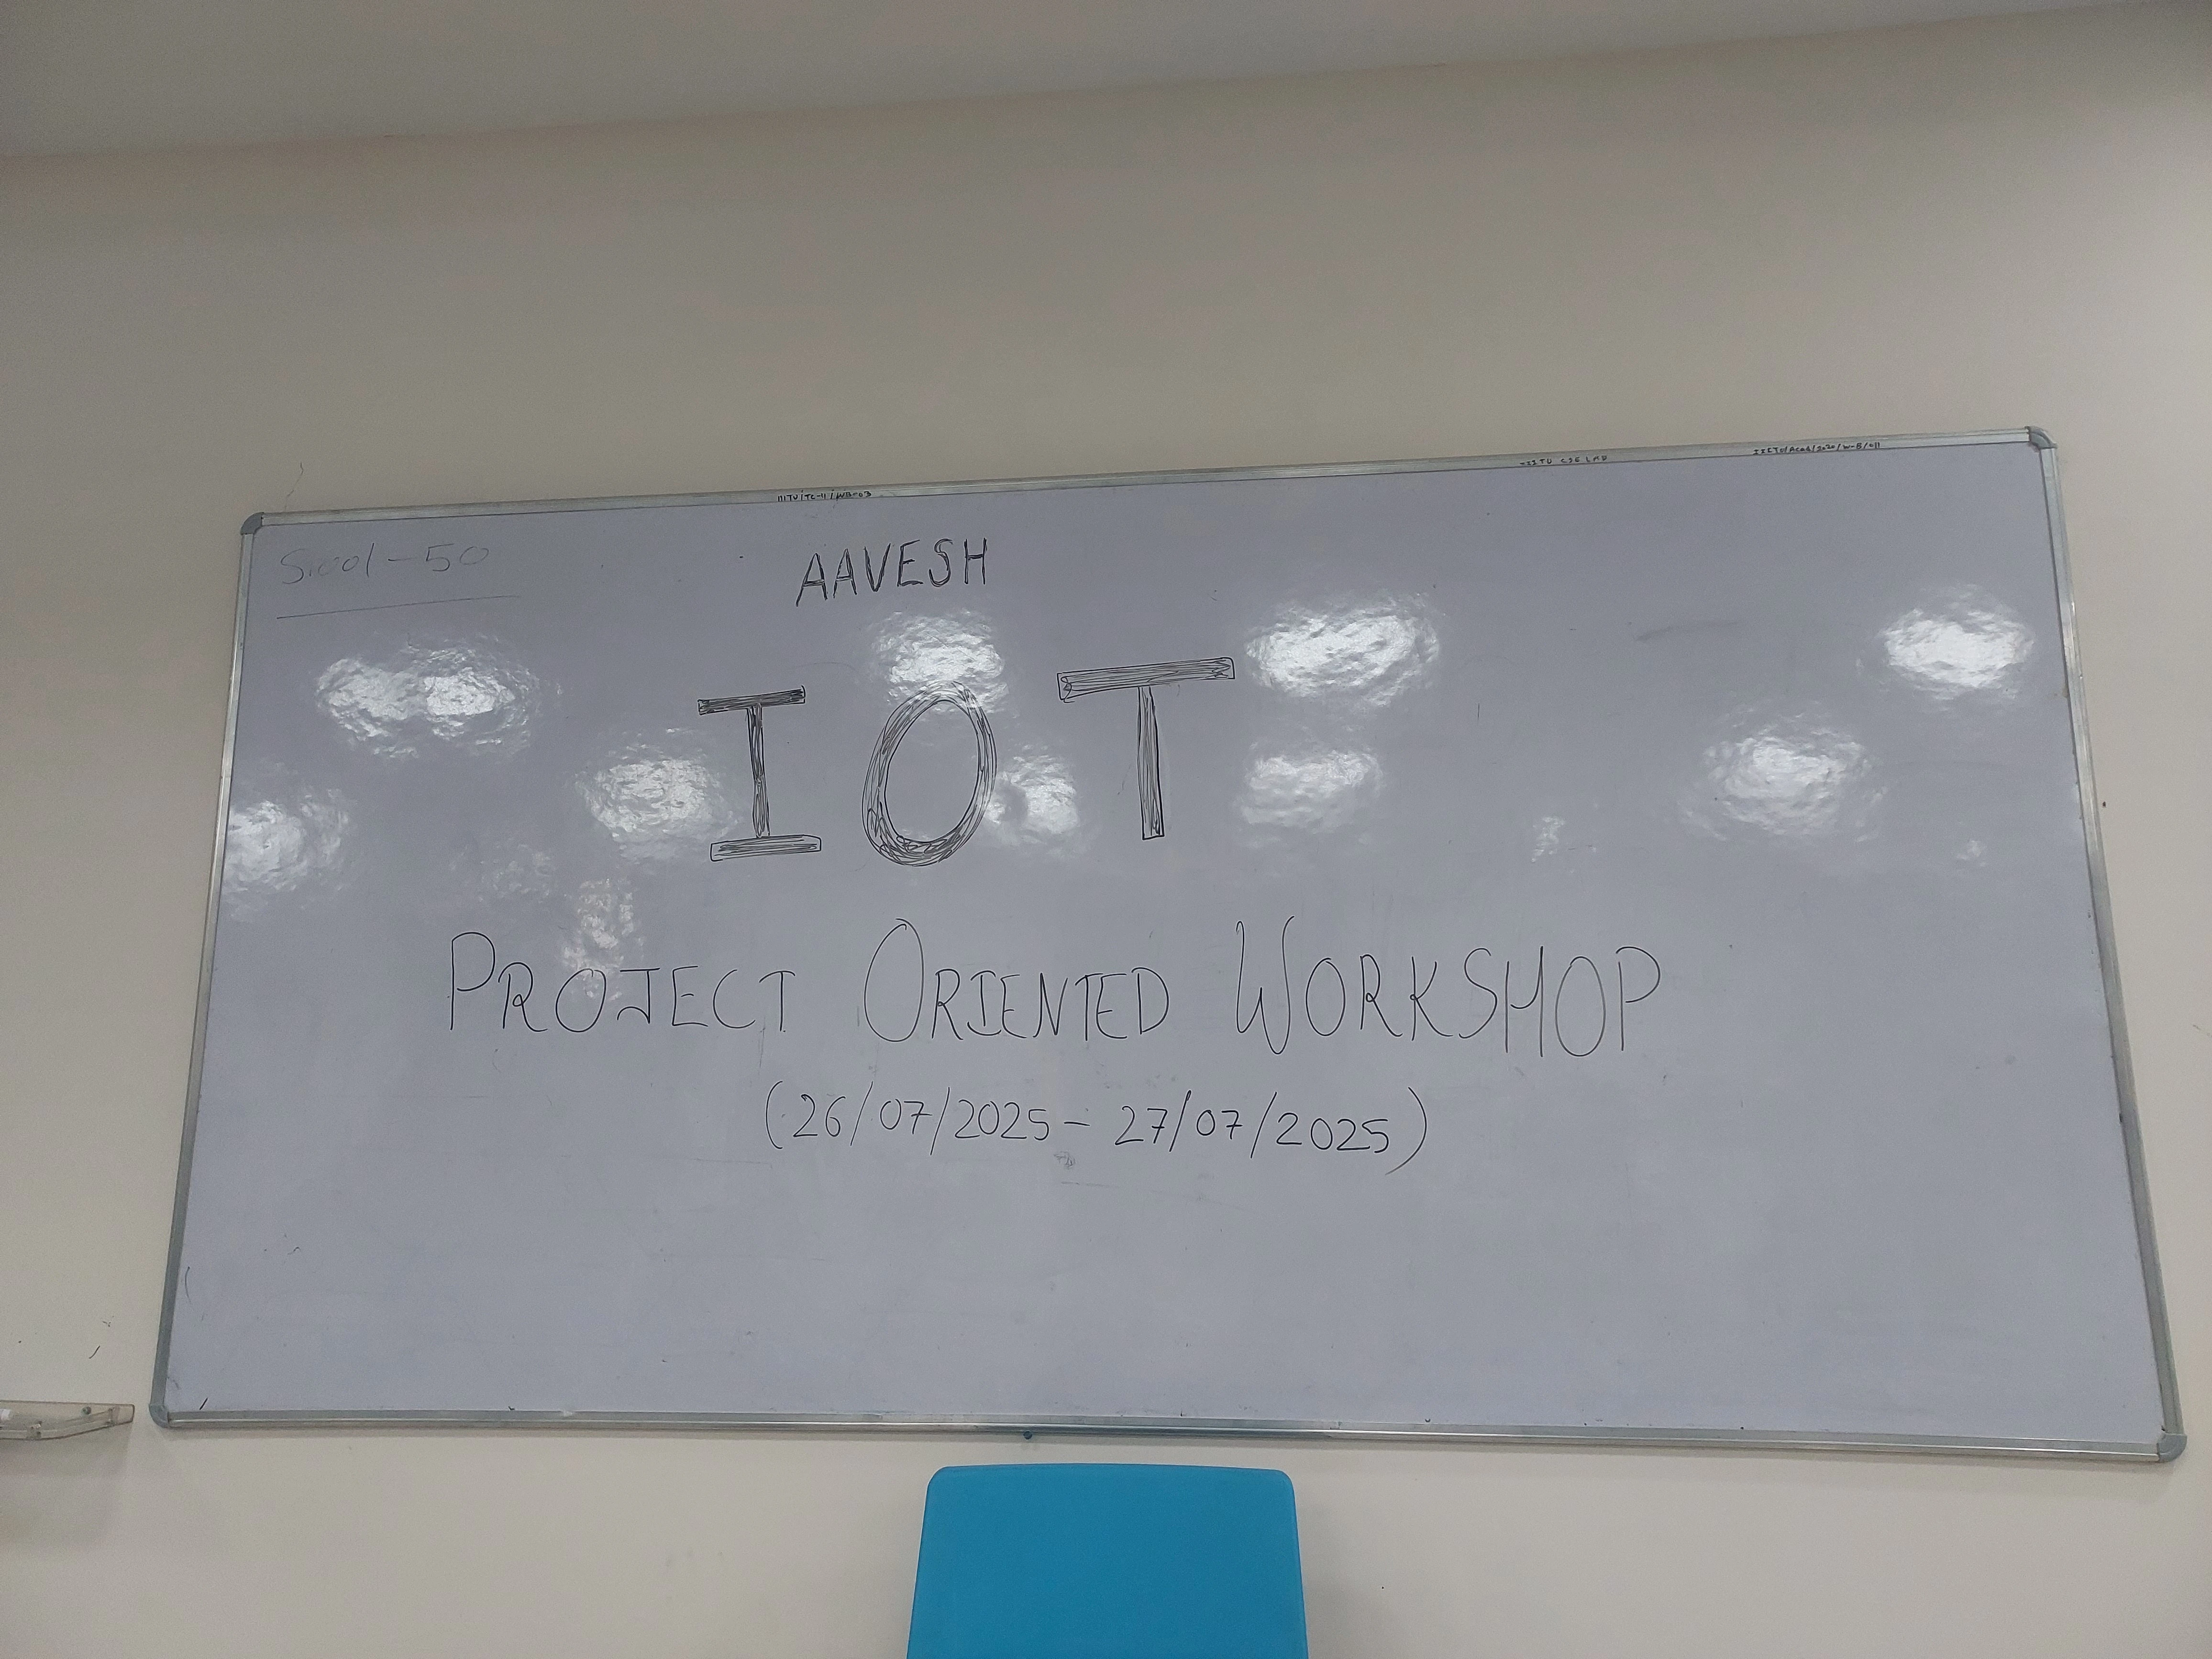 IIITU/TC-11/WB-03
AAVESH
IOT
PROJECT ORIENTED WORKSHOP
(26/07/2025 - 27/07/2025)